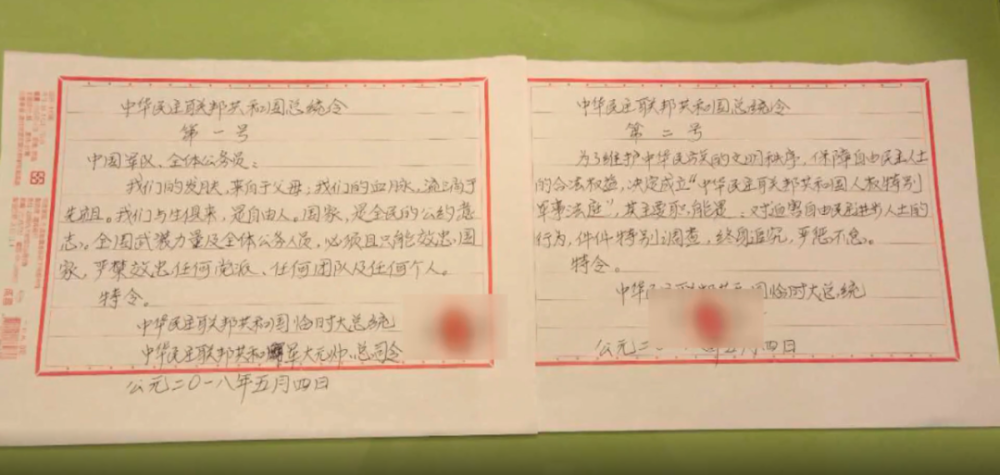 中华民主联邦共和国总统令
第一号
中国军队、全体公务员：
我们的发肤，来自于父母；我们的血脉，流淌于
先祖。我们与生俱来，是自由人。国家，是全民的公约意
志。全国武装力量及全体公务人员，必须且只能效忠国
家，严禁效忠任何党派、任何团队及任何个人。
特令。
中华民主联邦共和国临时大总统
中华民主联邦共和 军大元帅、总司令
公元二〇一八年五月四日
中华民主联邦共和国总统令
第二号
为了维护中华民族的文明秩序，保障自由民主人士
的合法权益，决定成立“中华民主联邦共和国人权特别
军事法庭”，其主要职能是：对迫害自由民主进步人士的
行为，件件特别调查，终身追究，严惩不怠。
特令。
中华民主联邦共和国临时大总统
公元二 五月四日